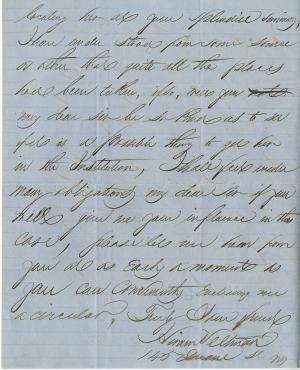 locating her at your splendid Seminary,
I have under stood from some source
or other that quite all the places
had been taken, if so, will you
my dear sir be so kind as to see
if it is a possible thing to get her
in the Institution, I shall feel under
many obligations my dear sir if you
will give me your influence in this
case, please let me hear from
you at as early a moment as
you can conveniently enclosing me
a circular, Truly Your friend
Hiram
145 Duane St NY